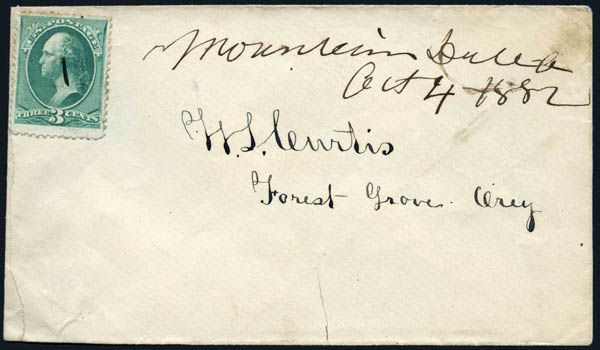 U.S. POSTAGE
THREE 3 CENTS
Mountain Dale O
Oct 4 1882
W. S. Curtis
Forest Grove. Oreg